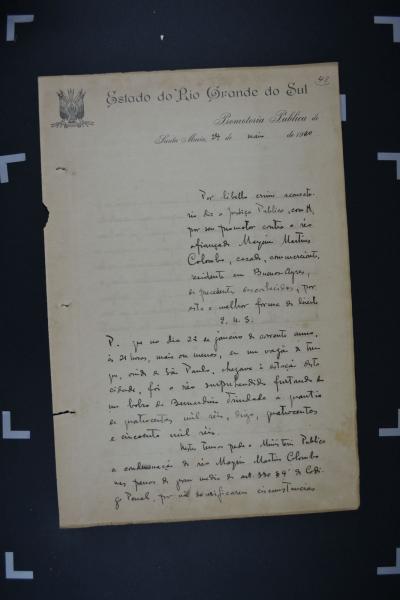 43
Estado do Rio Grande do Sul
Promotoria Publica de
Santa Maria, 24 de maio de 1910
Por libello crime accusato-
rio diz a Justiça Publica, com A,
por seu promotor contra o réo
afiançado Martins
Colombo, casado, commerciante,
residente em Buenos Ayres,
de precedentes desconhecidos, por
esta e melhor forma de direito
E. S. N.
P. que no dia 22 de janeiro do corrente anno,
ás 21 horas, mais ou menos, em um vagão de trem
que, vindo de São Paulo, chegava á estação desta
cidade, foi o réo surprehendido furtando do
no bolso de Bernardino Trindade a quantia
de quatrocentos mil réis, digo, quatrocentos
e cincoenta mil réis.
Nestes termos pede o Ministerio Publico
a condemnação do réo Martins Colombo
nas penas do grau medio do art. 330 § 4º do Codi-
go Penal, por não se verificarem circumstancias